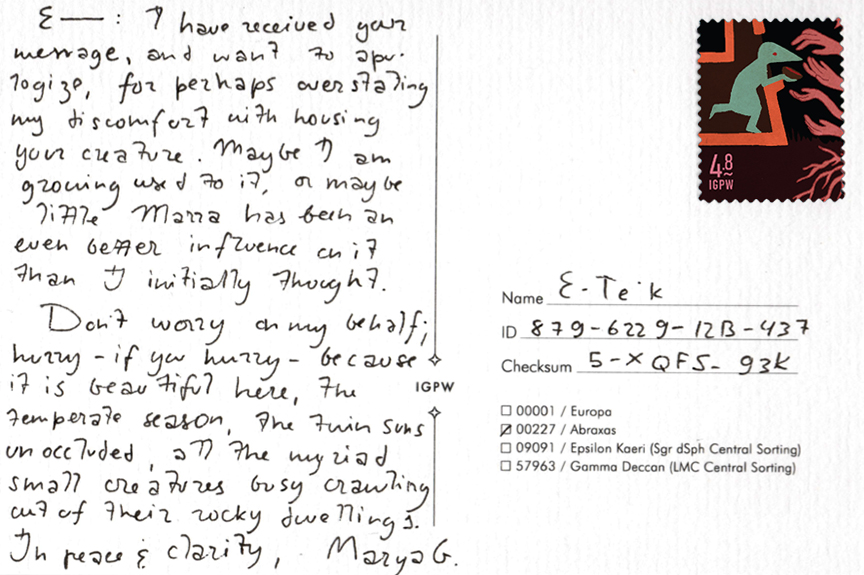 E——: I have received your
message, and want to apo-
logize, for perhaps overstating
my discomfort with housing
your creature. Maybe I am
growing used to it, or maybe
little Marra has been an
even better influence on it
than I initially thought.
Don't worry on my behalf;
hurry – if you hurry – because
it is beautiful here, the
temperate season, the twin suns
unoccluded, all the myriad
small creatures busy crawling
out of their rocky dwellings.
In peace & clarity, Marya G.
IGPW
4.8
IGPW
Name E-Teik
ID 879-6229-12B-437
Checksum 5-XQFS-93K
☐ 00001 / Europa
☑ 00227 / Abraxas
☐ 09091 / Epsilon Kaeri (Sgr dSph Central Sorting)
☐ 57963 / Gamma Deccan (LMC Central Sorting)